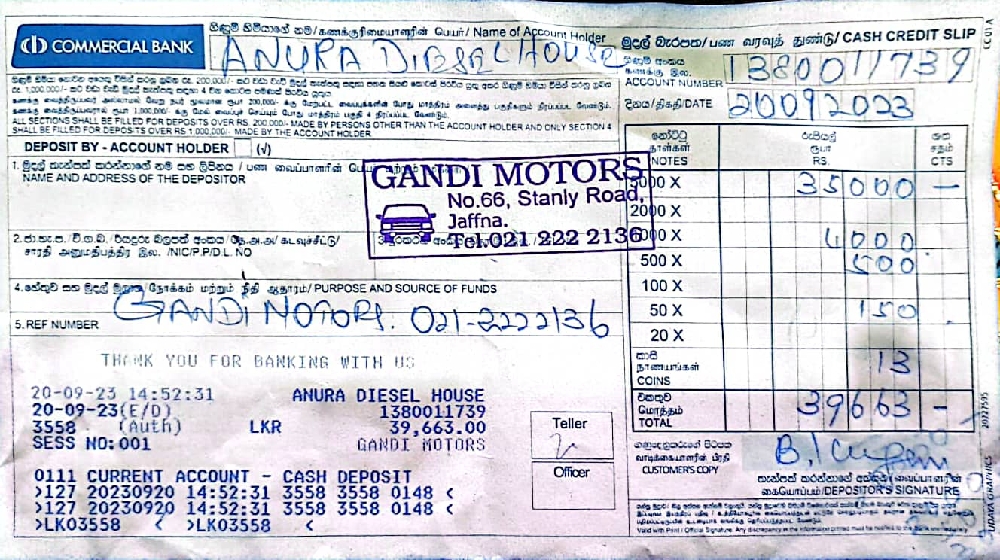 COMMERCIAL BANK
ගිණුම් හිමියාගේ නම/கணக்குரிமையாளரின் பெயர்/ Name of Account Holder
ANURA DIESEL HOUSE
මුදල් බැරපත/பண வரவுத் துண்டு/ CASH CREDIT SLIP
CC-01 A
ගිණුම් අංකය
கணக்கு இல.
ACCOUNT NUMBER
1380011739
දිනය/திகதி/DATE
20092023
ALL SECTIONS SHALL BE FILLED FOR DEPOSITS OVER RS. 200,000/- MADE BY PERSONS OTHER THAN THE ACCOUNT HOLDER AND ONLY SECTION 4
SHALL BE FILLED FOR DEPOSITS OVER RS 1,000,000/- MADE BY THE ACCOUNT HOLDER.
DEPOSIT BY - ACCOUNT HOLDER (√)
NAME AND ADDRESS OF THE DEPOSITOR
GANDI MOTORS
No.66, Stanly Road,
Jaffna.
Tel.021 222 2136
சாரதி அனுமதிபத்திர இல. /NIC/P.P./D.L. NO
4. හේතුව සහ මුදල් මූලාශ්‍ර/நோக்கம் மற்றும் நிதி ஆதாரம்/ PURPOSE AND SOURCE OF FUNDS
GANDI MOTORS. 021-2222136
5. REF NUMBER
නෝට්ටු රුපියල් ශත
தாள்கள் ரூபா சதம்
NOTES RS. CTS
5000 X 35000 -
2000 X
1000 X 4000
500 X 500
100 X
50 X 150
20 X
කාසි
நாணயங்கள் 13
COINS
එකතුව
மொத்தம் 39663 -
TOTAL
THANK YOU FOR BANKING WITH US
20-09-23 14:52:31 ANURA DIESEL HOUSE
20-09-23(E/D) 1380011739
3558 (Auth) LKR 39,663.00
SESS NO:001 GANDI MOTORS
0111 CURRENT ACCOUNT - CASH DEPOSIT
>127 20230920 14:52:31 3558 3558 0148 <
>127 20230920 14:52:31 3558 3558 0148 <
>LK03558 < >LK03558 <
Teller
Officer
வாடிக்கையாளரின் பிரதி
CUSTOMER'S COPY
கையொப்பம்/DEPOSITOR'S SIGNATURE